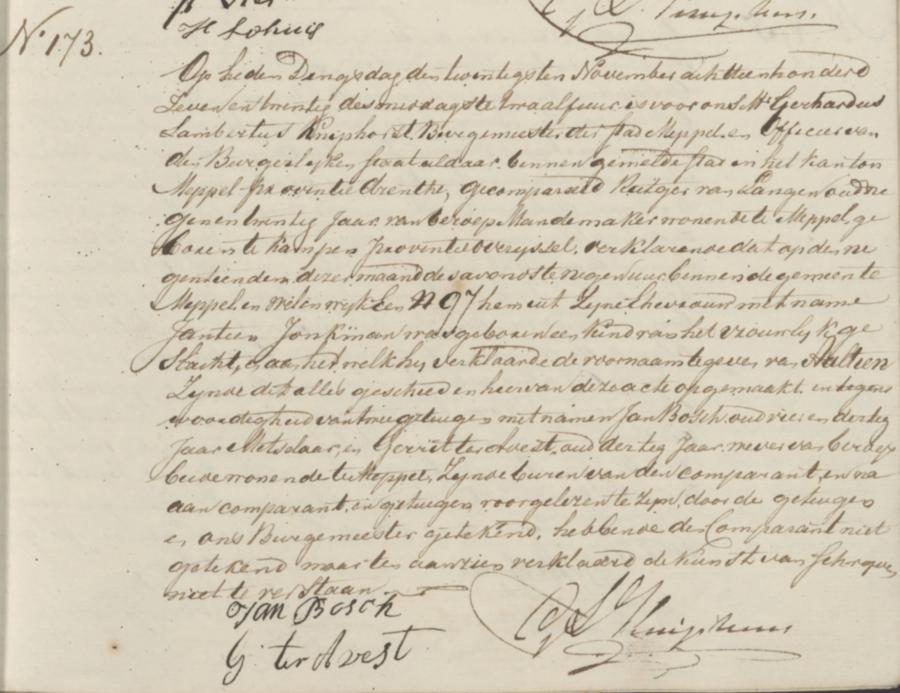 H Lohuis
No. 173.
Op heden Dingsdag den twintigsten November achttienhonderd
zeven en twintig des middags te twaalf uur is voor ons Mr Gerhardus
Lambertus Kniphorst Burgemeester der stad Meppel en Officier van
den Burgerlijken staat aldaar binnen gemelde stad en het kanton
Meppel provintie Drenthe, gecompareerd Rutger van Langen oud
en twintig Jaar van beroep Mandemaker wonende te Meppel ge
boren te Kampen provintie overyssel, verklarende dat op den ne
gentienden dezer maand des avonds te negen uur binnen de gemeente
Meppel en wel en wyk Een No 97 hem uit zyne Ehevrouw met name
Jantien Jonkman was geboren een kind van het vrouwlyk ge
slacht, aan het welk hy verklaarde de voornaam te geven van Aaltien
Zynde dit alles geschied en hiervan deze acte opgemaakt in tegens
woordigheid van twee getuigen met namen Jan Bosch oud vier en dertig
Jaar Metselaar, en Gerrit ter Avest, oud dertig Jaar wever van beroep
beide wonende te Meppel, Zynde buren van den comparant, en na
aan comparant en getuigen voorgelezen te zyn, door de getuigen
en ons Burgemeester getekend, hebbende de Comparant niet
getekend maar ten aanzien verklaard de kunst van Schryven
niet te verstaan.
Jan Bosch
G. ter Avest